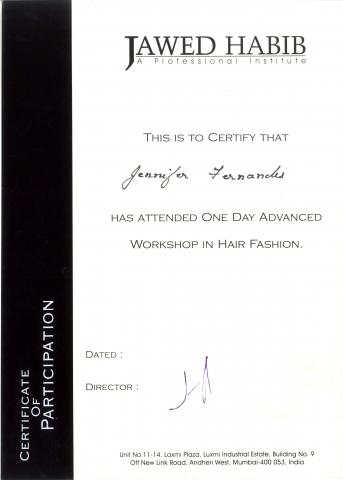 JAWED HABIB
A Professional Institute
THIS IS TO CERTIFY THAT
Jennifer Fernandes
HAS ATTENDED ONE DAY ADVANCED
WORKSHOP IN HAIR FASHION.
DATED :
DIRECTOR :
CERTIFICATE
OF
PARTICIPATION
Unit No.11-14, Laxmi Plaza, Luxmi Industrial Estate, Building No. 9
Off New Link Road, Andheri West, Mumbai-400 053, India